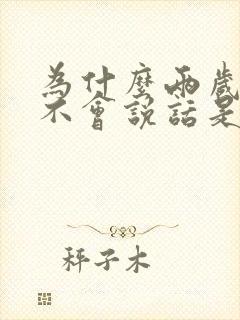 為什麼兩歲
不會說話是
秤子木